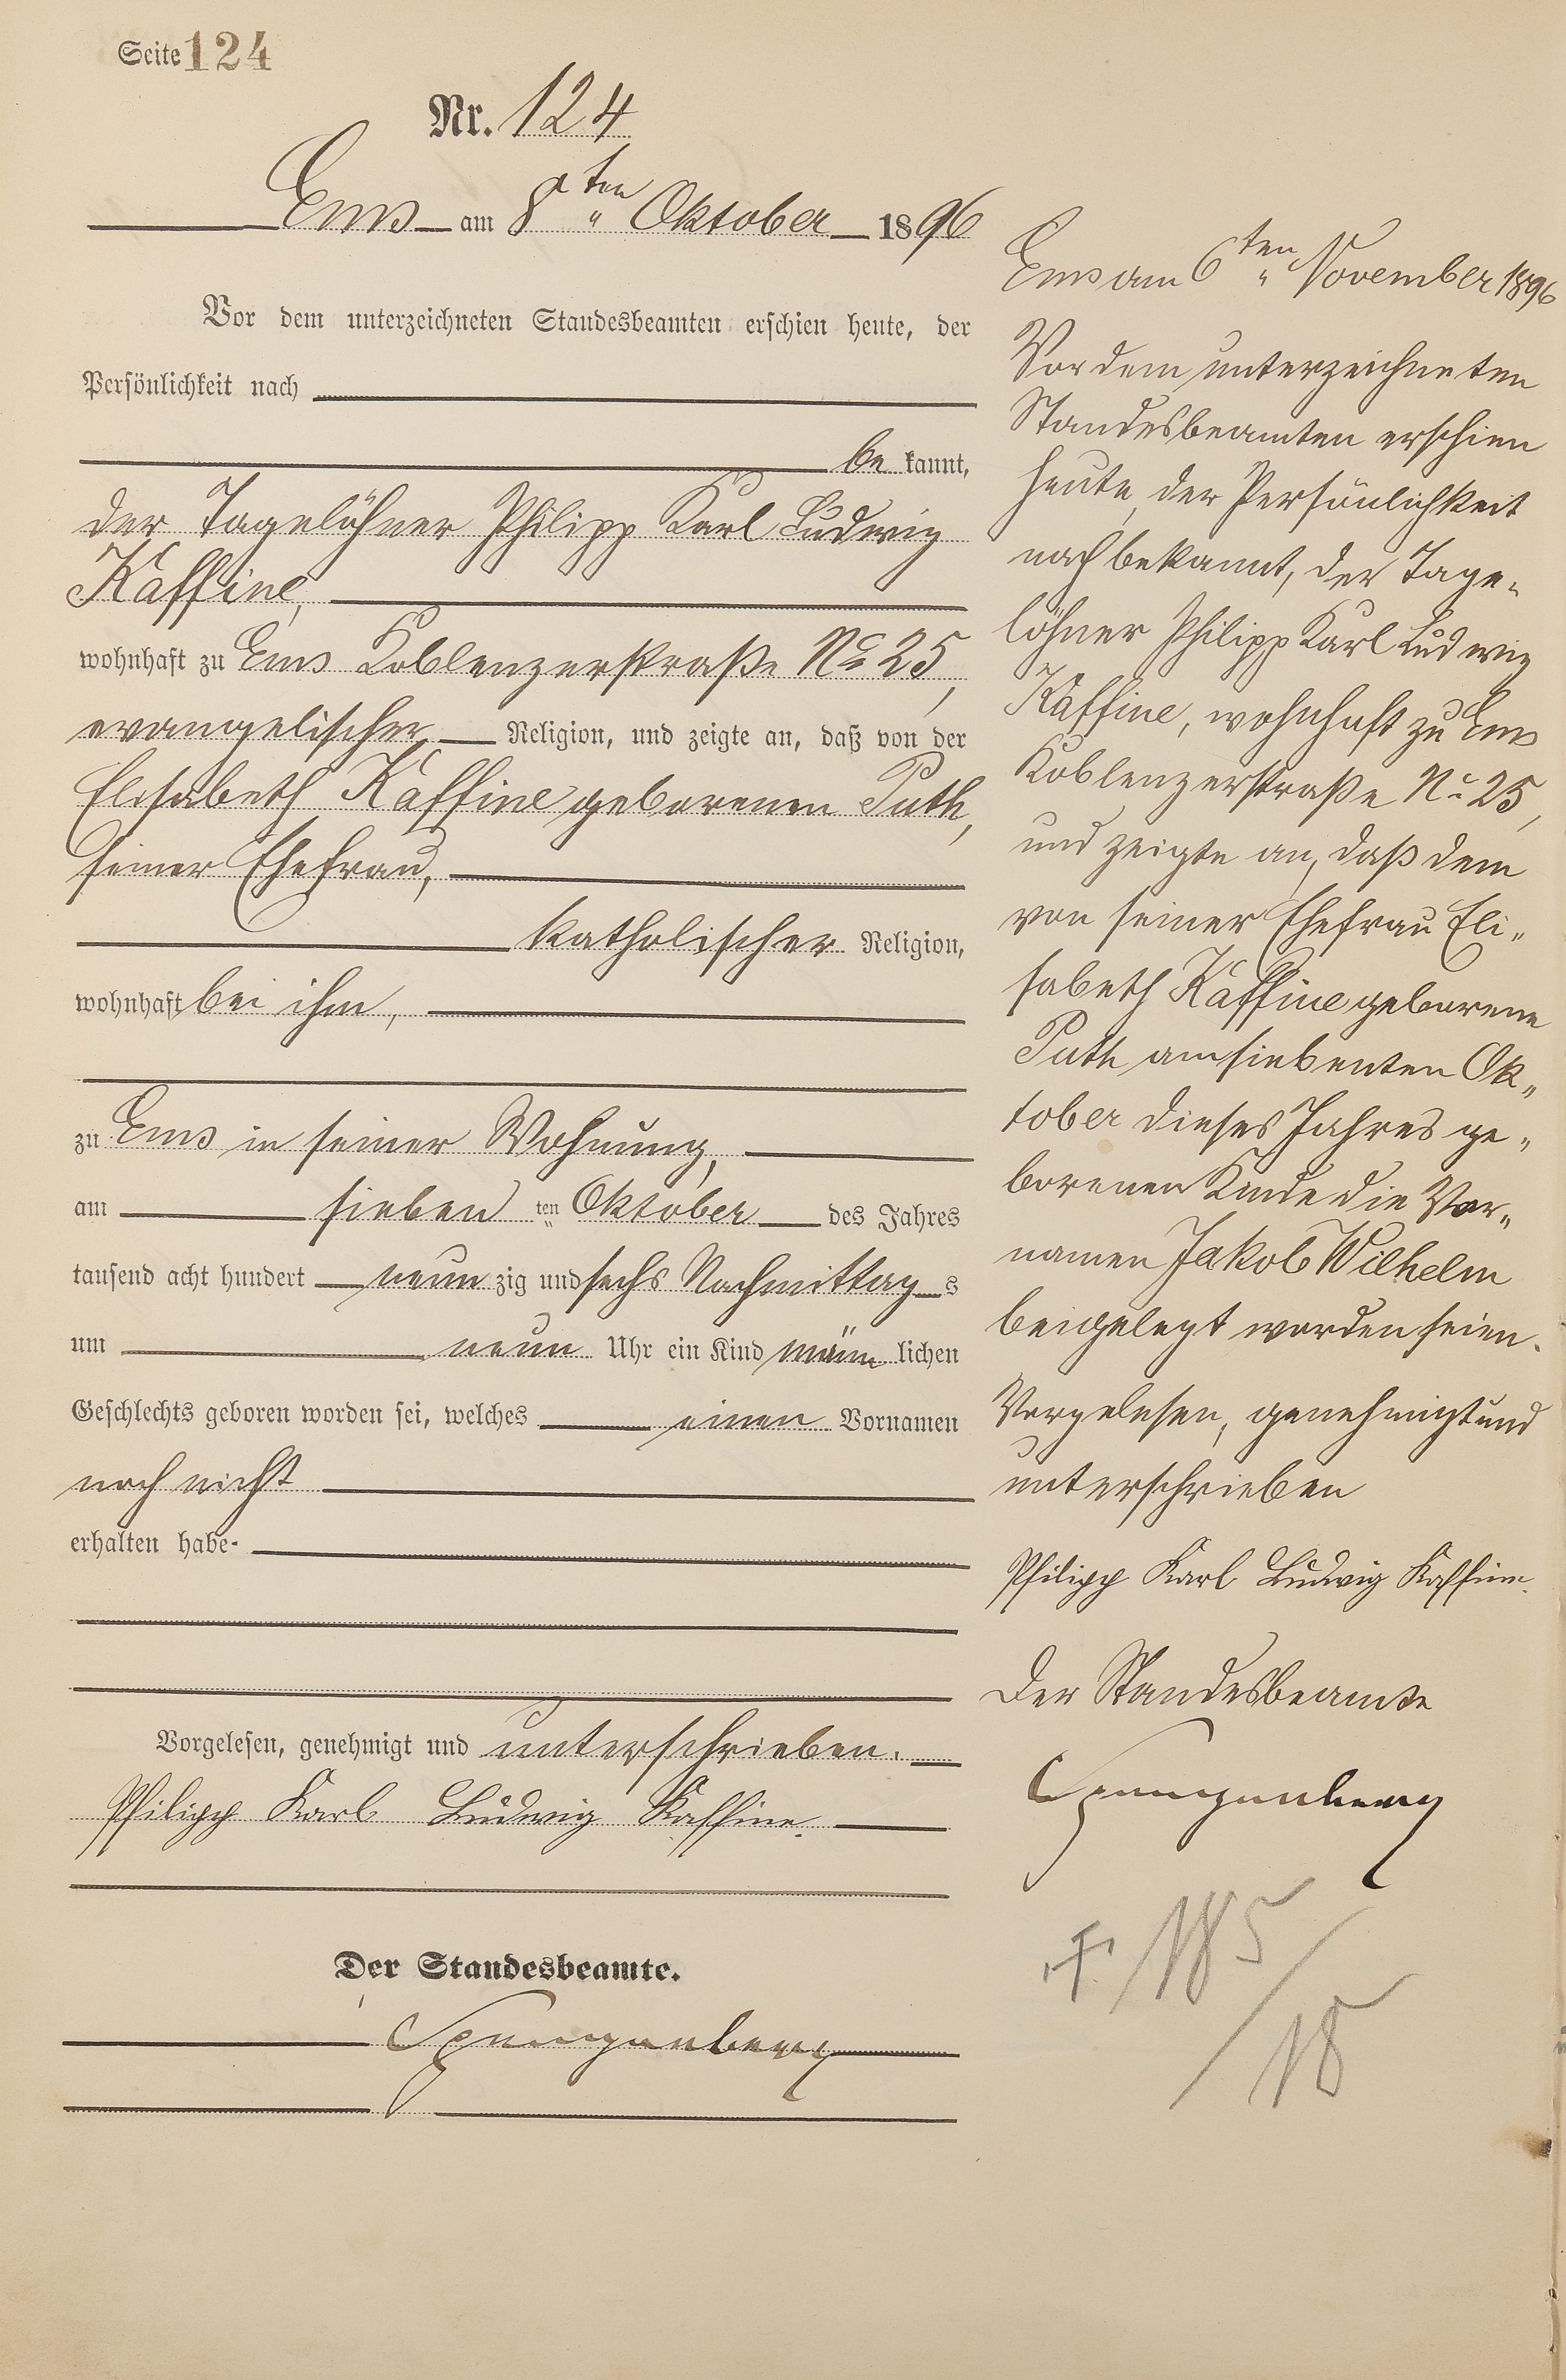 Seite 124
Nr. 124
Ems am 8ten Oktober 1896
Vor dem unterzeichneten Standesbeamten erschien heute, der
Persönlichkeit nach
be kannt,
der Tagelöhner Philipp Karl Ludwig
Kaffine,
wohnhaft zu Ems Koblenzerstraße No 25,
evangelischer Religion, und zeigte an, daß von der
Elisabeth Kaffine geborenen Puth,
seiner Ehefrau,
katholischer Religion,
wohnhaft bei ihm,
zu Ems in seiner Wohnung,
am sieben ten Oktober des Jahres
tausend acht hundert neun zig und sechs Nachmittag s
um neun Uhr ein Kind männ lichen
Geschlechts geboren worden sei, welches einen Vornamen
noch nicht
erhalten habe.
Vorgelesen, genehmigt und unterschrieben.
Philipp Karl Ludwig Kaffine.
Der Standesbeamte.
Spangenberg
Ems am 6ten November 1896
Vor dem unterzeichneten
Standesbeamten erschien
heute, der Persönlichkeit
nach bekannt, der Tage-
löhner Philipp Karl Ludwig
Kaffine, wohnhaft zu Ems
Koblenzerstraße No 25,
und zeigte an, daß dem
von seiner Ehefrau Eli-
sabeth Kaffine geborene
Puth am siebenten Ok-
tober dieses Jahres ge-
borenen Kinde die Vor-
namen Jakob Wilhelm
beigelegt worden seien.
Vorgelesen, genehmigt und
unterschrieben
Philipp Karl Ludwig Kaffine.
Der Standesbeamte
Spangenberg
185/18